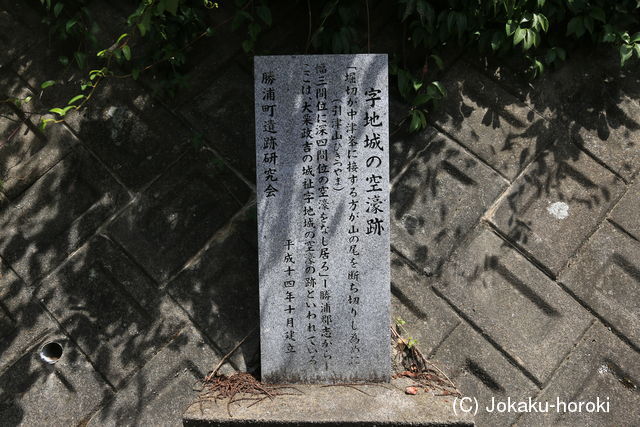 字地城の空濠跡
「堀切が中津峯に接する方が山の尾を断ち切りし為めに
(引津山ひきつやま)
幅三間位に深四間位の空濠をなし居る」ー勝浦郡志からー
ここは、大栗政吉の城址字地城の空濠の跡といわれている。
平成十四年十月建立
勝浦町遺跡研究会
(C) Jokaku-horoki